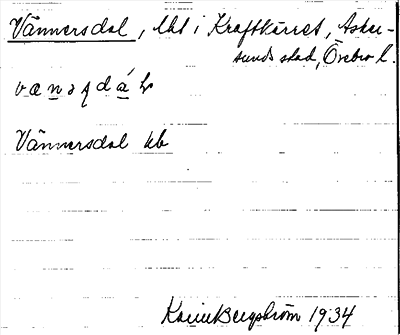 Vännersdal, lht i Kraftkärret, Asker-
sunds stad, Örebro l.
Vännersdal kb
Karin Bergström 1934